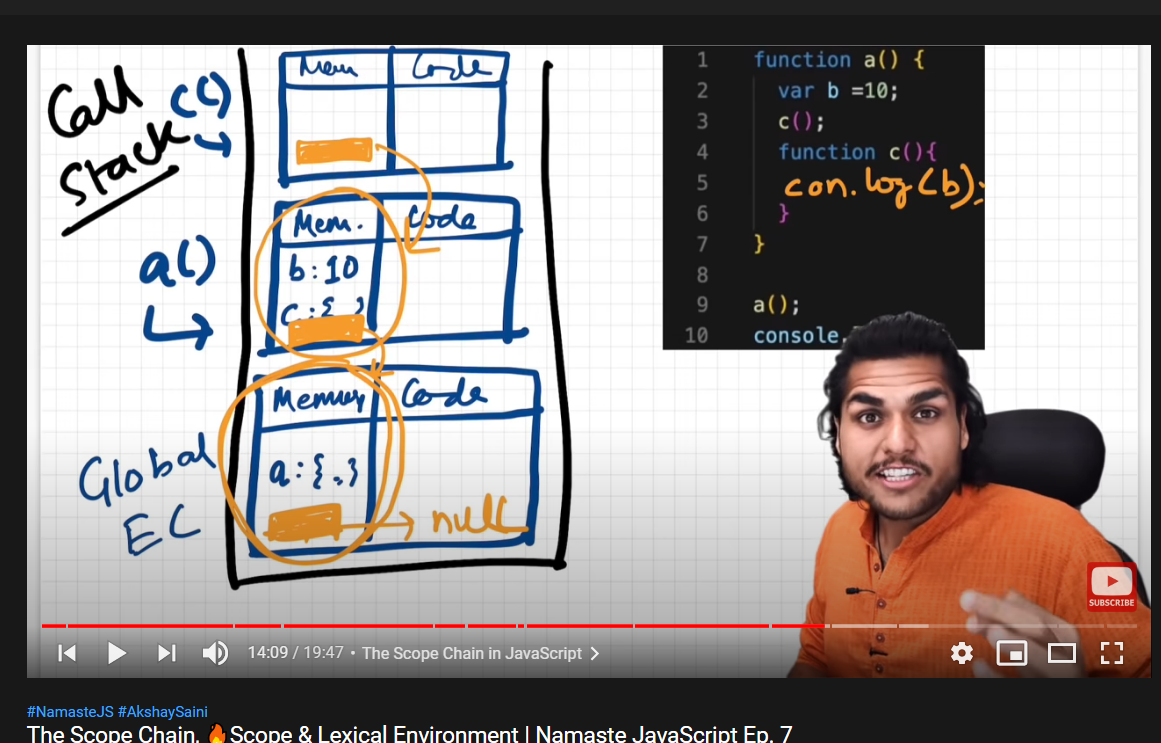 Call
Stack
c()
Mem
Code
a()
Mem.
Code
b:10
c:{ }
Global
EC
Memory
Code
a:{.}
null
1 function a() {
2 var b =10;
3 c();
4 function c(){
5 con.log(b);
6 }
7 }
8
9 a();
10 console.
SUBSCRIBE
14:09 / 19:47 • The Scope Chain in JavaScript
#NamasteJS #AkshaySaini
The Scope Chain, 🔥Scope & Lexical Environment | Namaste JavaScript Ep. 7